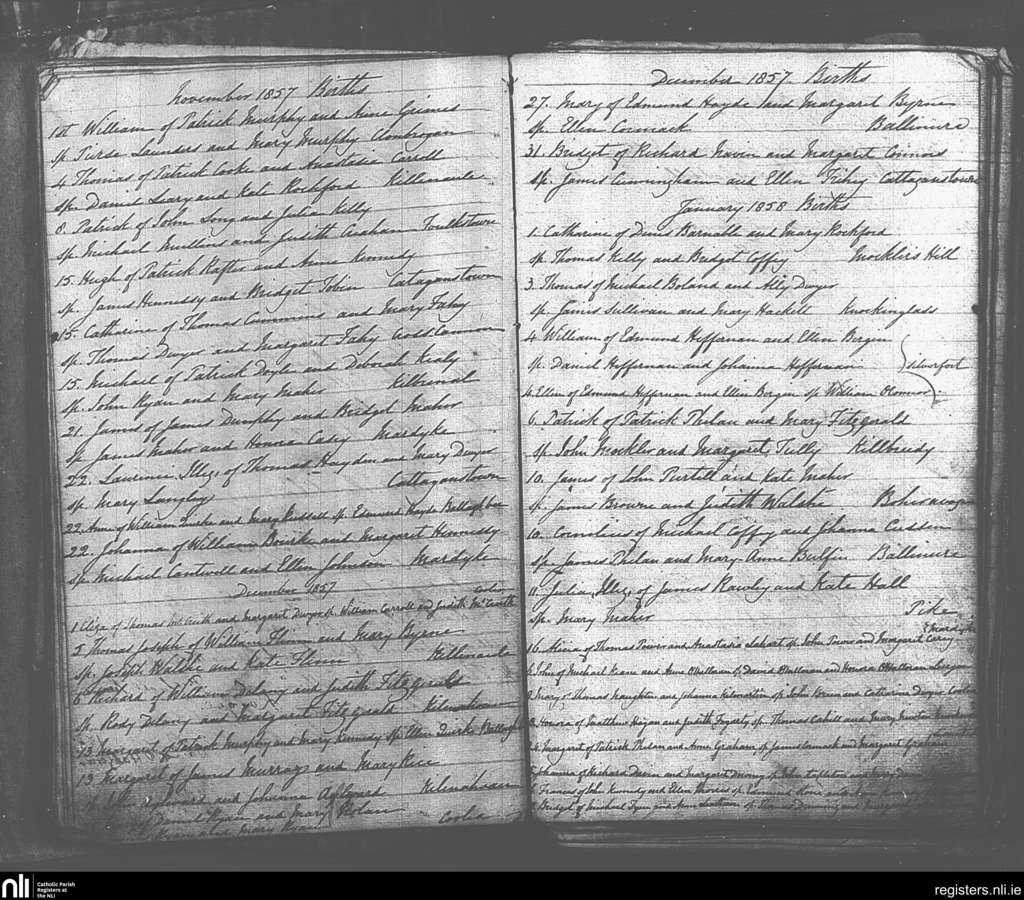 November 1857 Births
1st William of Patrick Murphy and Anne Grimes
sp. Pierse Saunders and Mary Murphy Clonbrogan
4 Thomas of Patrick Cooke and Anastasia Carroll
sp. Daniel Leary and Kate Rochford Killenaule
8. Patrick of John Long and Julia Kelly
sp. Michael Mullins and Judith Graham Foulkstown
15. Hugh of Patrick Rafter and Anne Kennedy
sp. James Hennessy and Bridget Tobin Cataganstown
15. Catharine of Thomas Cummins and Mary Fahy
sp. Thomas Dwyer and Margaret Fahy
15 Michael of Patrick Doyle and Deborah Kealy
sp. John Ryan and Mary Maher
21. James of James Dunphy and Bridget Maher
sp. James Maher and Honora Casey Mardyke
22. Laurence Illeg. of Thomas Hayden and Mary Dwyer
sp. Mary Langley Cattaganstown
22. Anne of William Quirke and Mary Russell sp. Edmund Hayde
22. Johanna of William Bourke and Margaret Hennessy
sp. Michael Cantwell and Ellen Johnson Mardyke
December 1857
1 Eliza of Thomas McCraith and Margaret Dwyer sp. William Carroll and Judith McCraith
5 Thomas Joseph of William Flynn and Mary Byrne
sp. Joseph Walshe and Kate Flinn Killenaule
6 Richard of William Delany and Judith Fitzgerald
sp. Rody Delany and Margaret Fitzgerald
13 Margaret of Patrick Murphy and Mary Kennedy sp. Ellen Quirke
13 Margaret of James Murray and Mary Rice
and Johanna
and Mary
and Mary Coolea
December 1857 Births
27. Mary of Edmund Hayde and Margaret Byrne
sp. Ellen Cormack Ballinure
31. Bridget of Richard Naven and Margaret Connors
sp. James Cunningham and Ellen Fahy Cattaganstown
January 1858 Births
1. Catharine of Denis Barnable and Mary Rochford
sp. Thomas Kelly and Bridget Coffey Mocklers Hill
3. Thomas of Michael Boland and Ally Dwyer
sp. James Sullivan and Mary Hackett Knockinglass
4 William of Edmund Heffernan and Ellen Bergin
sp. Daniel Heffernan and Johanna Heffernan Silverfort
4. Ellen of Edmund Heffernan and Ellen Bergin sp. William Oconnor
6. Patrick of Patrick Phelan and Mary Fitzgerald
sp. John Mockler and Margaret Tully Killbreedy
10. James of John Purtell and Kate Maher
sp. James Browne and Judith Walshe
10. Cornelius of Michael Coffey and Johanna Cudden
sp. James Phelan and Mary Anne Bulfin Ballinure
11. Julia Illeg. of James Rawley and Kate Hall
sp. Mary Maher Pike
16. Alicia of Thomas Power and Anastasia sp. John Power and Margaret Carey
of Michael Keane and Anne OHalloran sp. David OHalloran and Honora OHalloran
Mary of Thomas Naughton and Johanna Kilmartin sp. John Brien and Catherine Dwyer
Honora of Matthew Hogan and Judith Fogarty sp. Thomas Cahill and Mary
Margaret of Patrick Phelan and Anne Graham sp. James Cormack and Margaret Graham
Johanna of Richard and Margaret sp. John Stapleton and Mary
Francis of John Kennedy and Ellen sp. Edmund
Bridget of Michael and Anne sp. Thomas and
nli
Catholic Parish
Registers at
the NLI
registers.nli.ie